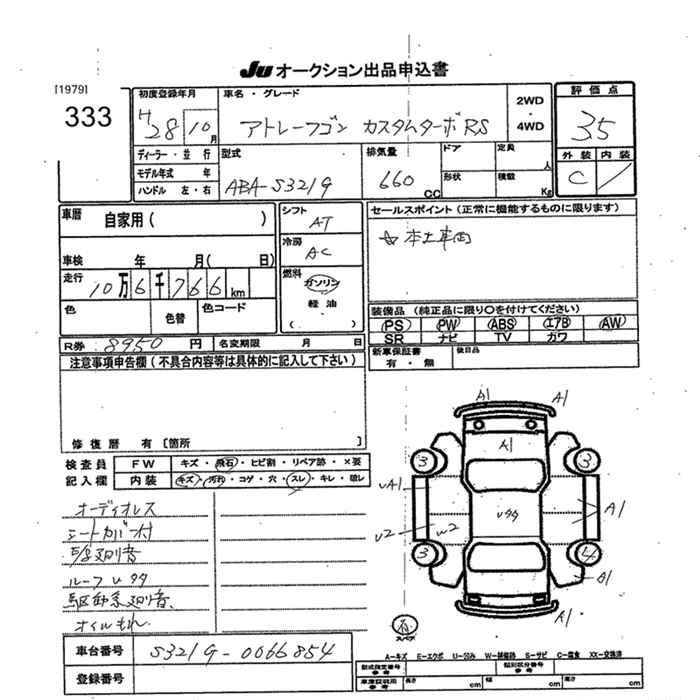 JU オークション出品申込書
[1979]
333
初度登録年月
H 28 10 月
車名・グレード
アトレーワゴン カスタムターボRS
2WD
・
4WD
評価点
3.5
外装 内装
C
ディーラー・並行
モデル年式 年
ハンドル 左・右
型式
ABA-S321G
排気量
660 CC
ドア
形状
定員 人
積載 Kg
車歴 自家用( )
車検 年 月( 日)
走行 10万6千766km
色 色替 色コード
シフト AT
冷房 AC
燃料
ガソリン
・
軽油
( )
セールスポイント(正常に機能するものに限ります)
☆本土車両
装備品(純正品に限り○を付けてください)
(PS) (PW) (ABS) (エアB) (AW)
SR ナビ TV カワ
新車保証書 有・無
後日品
R券 8950 円 名変期限 月 日
注意事項申告欄(不具合内容等は具体的に記入して下さい)
修復歴 有[箇所 ]
検査員 FW キズ・飛石・ヒビ割・リペア跡・×要
記入欄 内装 キズ・汚れ・コゲ・穴・スレ・キレ・破レ
オーディオレス
シートカバー付
ルーフUタタ
駆動系廻り音
オイルもれ
A1 A1
A1
3 3
UA1 Uタタ A1
U2 W2
3 4
A1
スペア
車台番号 S321G-0066854
登録番号
A-キズ E-エクボ U-凹み W-補修跡 S-サビ C-腐食 XX-交換済
型式指定番号 参考 類別区分番号 参考
車庫証明用 参考 長さ cm 幅 cm 高さ cm